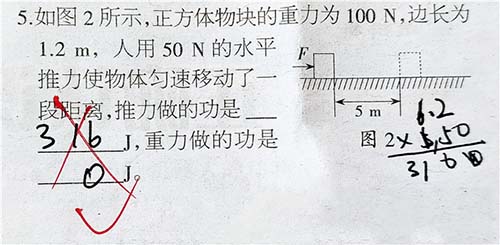 5.如图2所示,正方体物块的重力为100 N,边长为
1.2 m,人用50 N的水平
推力使物体匀速移动了一
段距离,推力做的功是
316 J,重力做的功是
0 J。
F
5 m
图2
6.2
50
3100